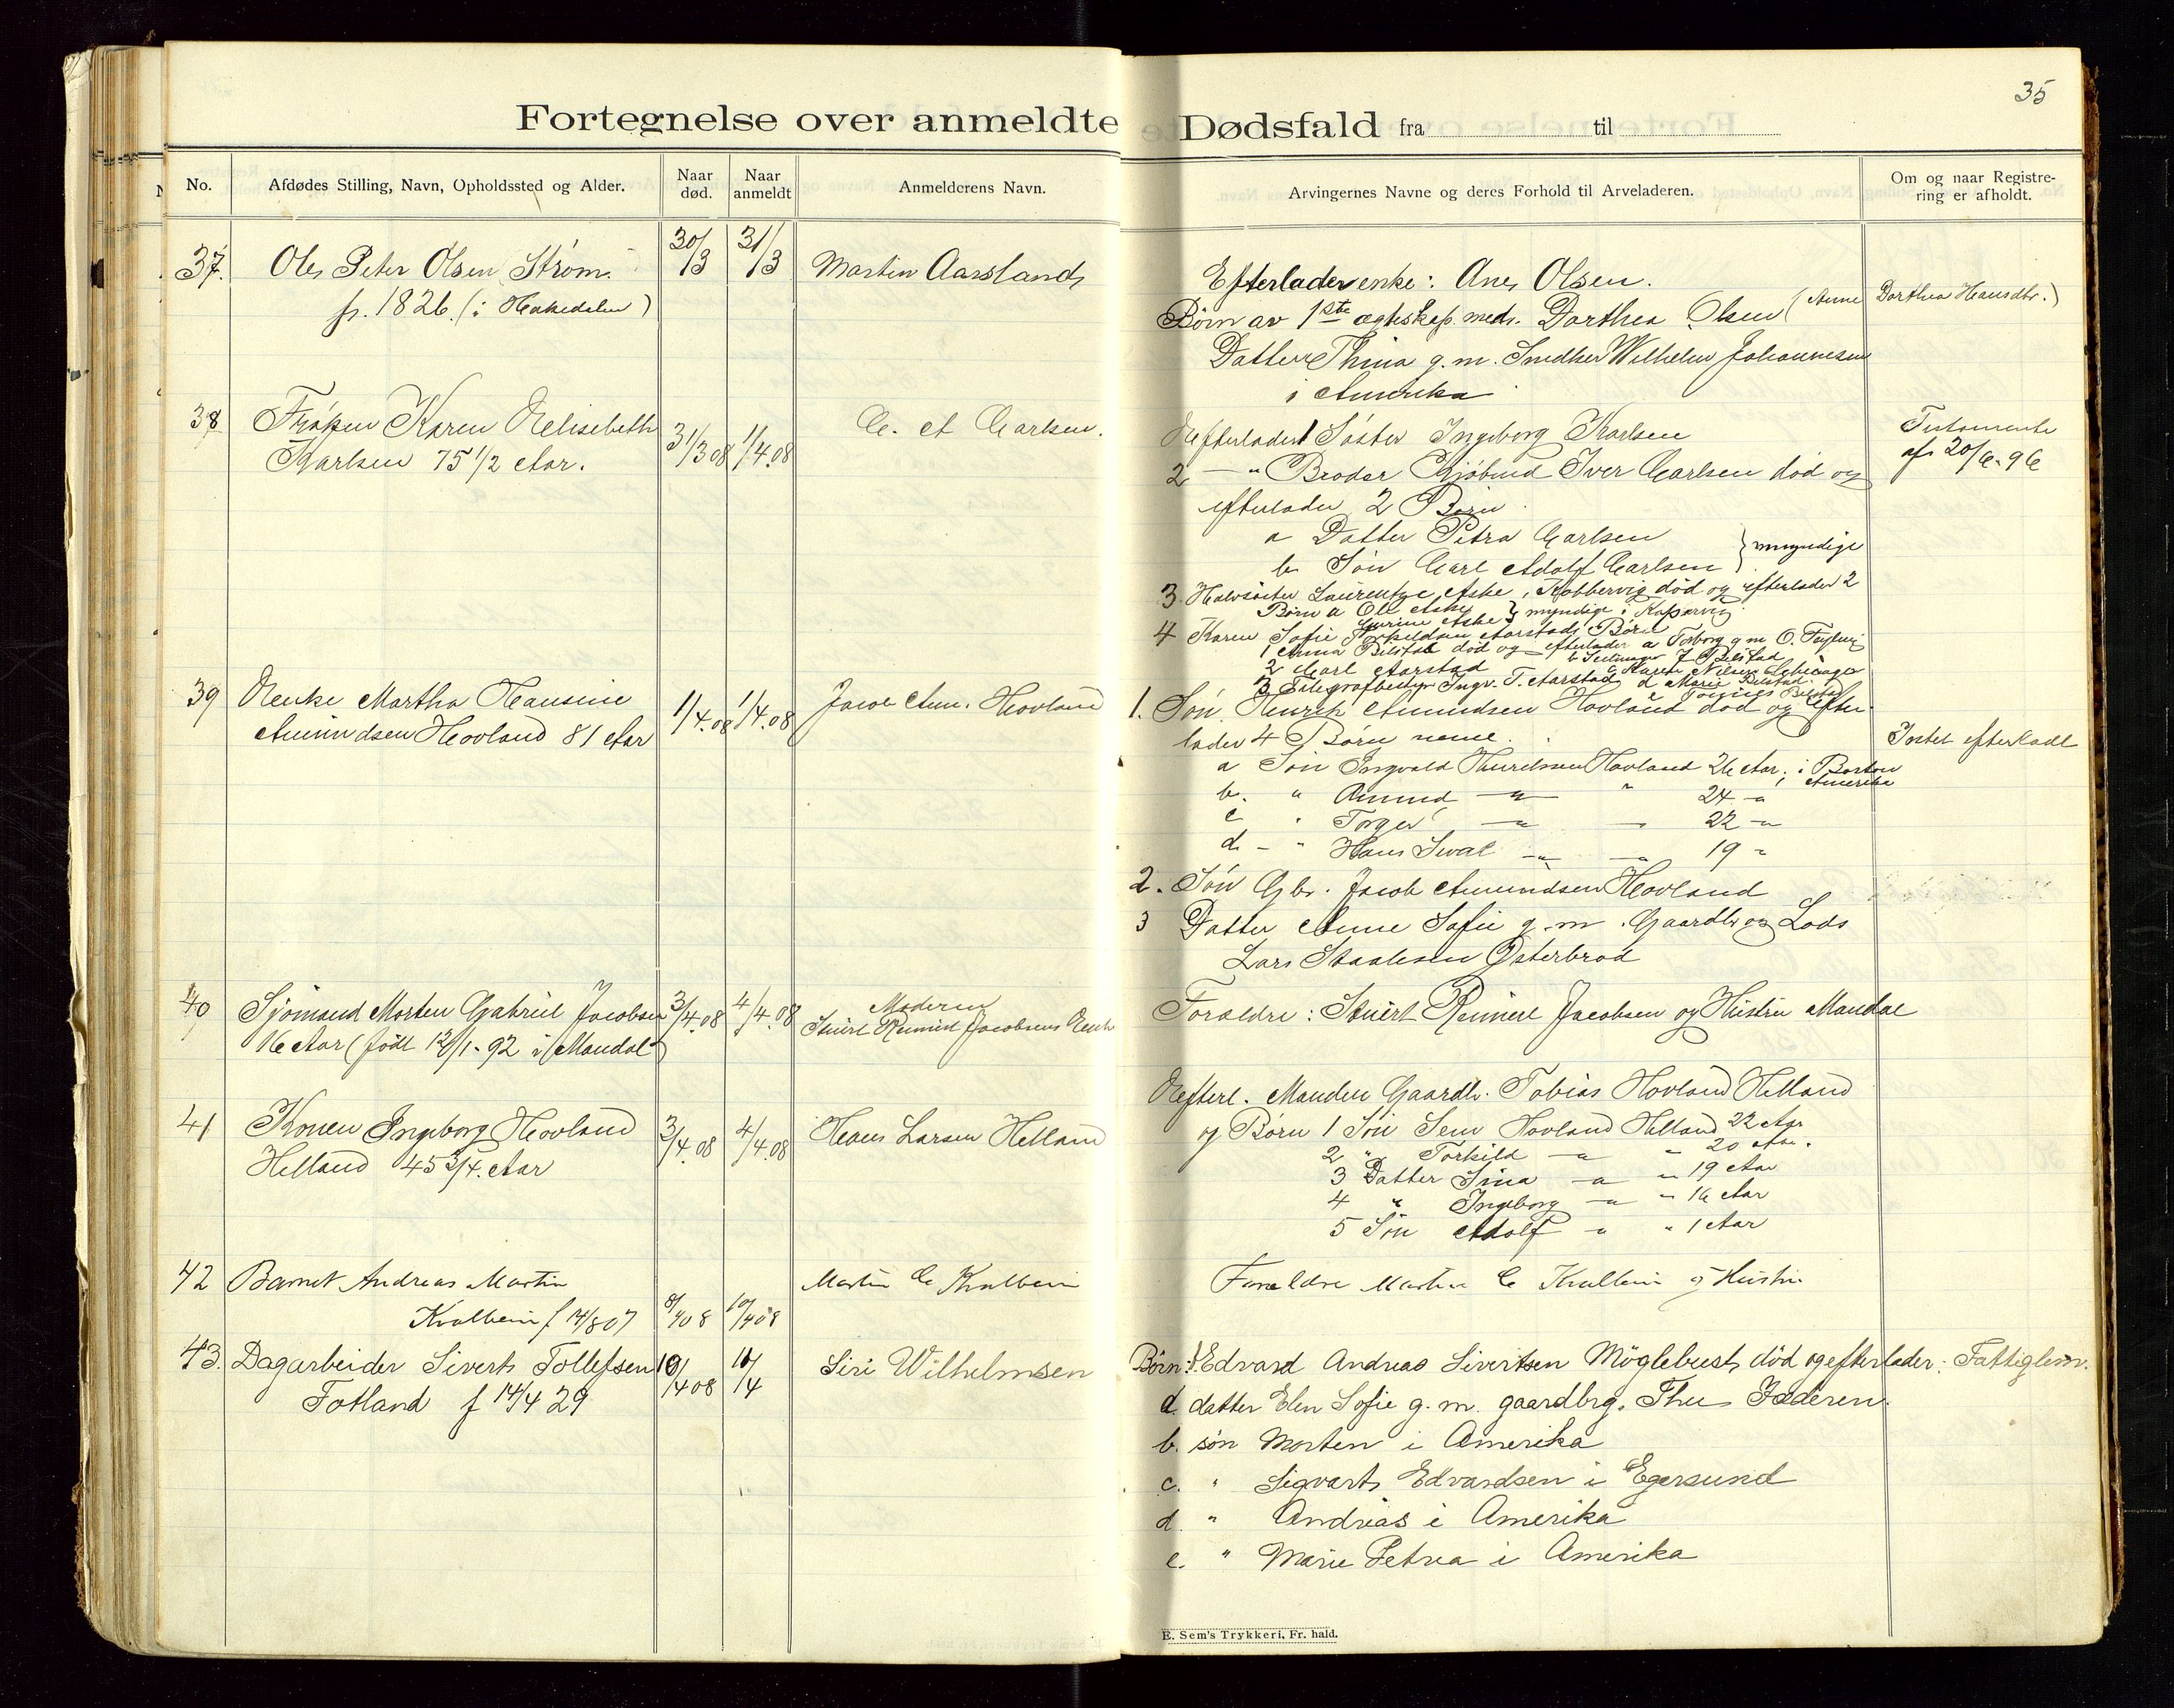 35
Fortegnelse over anmeldte Dødsfald fra til
No.
Afdødes Stilling, Navn, Opholdssted og Alder.
Naar død.
Naar anmeldt
Anmelderens Navn.
Arvingernes Navne og deres Forhold til Arveladeren.
Om og naar Registre-
ring er afholdt.
37. Ole Peter Olsen Strøm. 30/3 31/3 Martin Aarstands
1826. (i )
Efterlader enke: Ane Olsen.
Børn av 1ste ægteskap. med. Dorthea Olsen (Anne Dorthea Hansdtr.)
Datter Thina g. m. Snedker Wilhelm Johannesen
i Amerika
38 Frøken Karen Elisebeth
Karlsen 75 1/2 Aar. 31/3 08 1/4.08 C. A Carlsen.
Efterlader 1 Søster Ingeborg Karlsen
2 — " Broder Kjøbmd Iver Carlsen død og
efterlader 2 Børn
a Datter Petra Carlsen
b Søn Carl Adolf Carlsen } myndige
3. Halvsøster Laurentze Aske, død og efterlader 2
Børn a Ole Aske } myndige i
Aske
4 Karen Sofie Aarstads Børn
1 Anna død og efterlader a Torborg g m O.
2 Carl Aarstad
3 Ingv. T. Aarstad d Marie
Testamente
af 20/6-96
39 Enke Martha Hansine
Amundsen Hovland 81 Aar 1/4.08 1/4.08 Jacob Am. Hovland
1. Søn Henrik Amundsen Hovland død og efter
lader 4 Børn
a Søn Ingvald Henriksen Hovland 26 Aar. i Boston
Amerika
b. " Amund — " — " 24 — "
c " Torger — " — 22 — "
d. — " Hans — " — 19 "
2. Søn Gbr. Jacob Amundsen Hovland
3 Datter Anne Sofie g. m. Gaardbr og Lods
Lars Staalesen Østerbrød
Intet efterladt
40 Sjømand Morten Gabriel Jacobsen 3/4.08 4/4.08 Moderen
16 Aar (født 12/1-92 i Mandal)
Jacobsens Enke
Foreldre: Jacobsen og Hustru Mandal
41 Konen Ingeborg Hovland
Helland 45 3/4. Aar 3/4.08 4/4.08 Hans Larsen Helland
Efterl. Manden Gaardb. Tobias Hovland Helland
og Børn 1 Søn Sem Hovland Helland 22 Aar
2 " Torkild — " — " 20 Aar.
3 Datter Sina — " — " 19 Aar
4 " Ingeborg — " — " 16 Aar
5 Søn Adolf " " 1 Aar
42 Barnet Andreas Martin
Kvalbein f 14/8 07 8/4 08 10/4 08 Martin C Kvalbein
Foreldre Martin C Kvalbein og Hustru
43. Dagarbeider Sivert Tollefsen
Fotland f 14/4 29 10/4 08 11/4 Siri Wilhelmsen
Børn: 1. Edvard Andreas Sivertsen Møglebust, død og efterlader: Fattiglem.
a. datter Elen Sofie g. m. gaardbrg. Thu Jæderen.
b. søn Morten i Amerika
c. " Sigvart Edvardsen i Egersund
d. " Andreas i Amerika
e. " Marie Petra i Amerika
E. Sem's Trykkeri, Fr. hald.